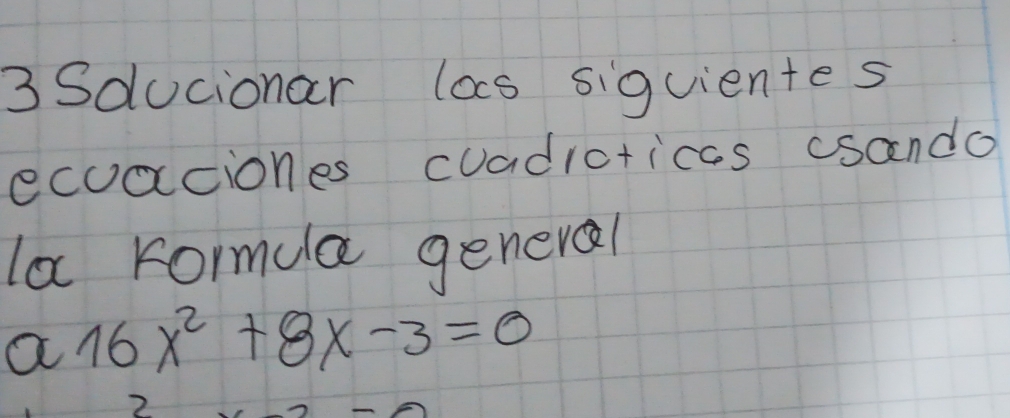 3 Solucionar las siguientes
ecuaciones cuadraticas usando
la formula general
a 16x² + 8x - 3 = 0